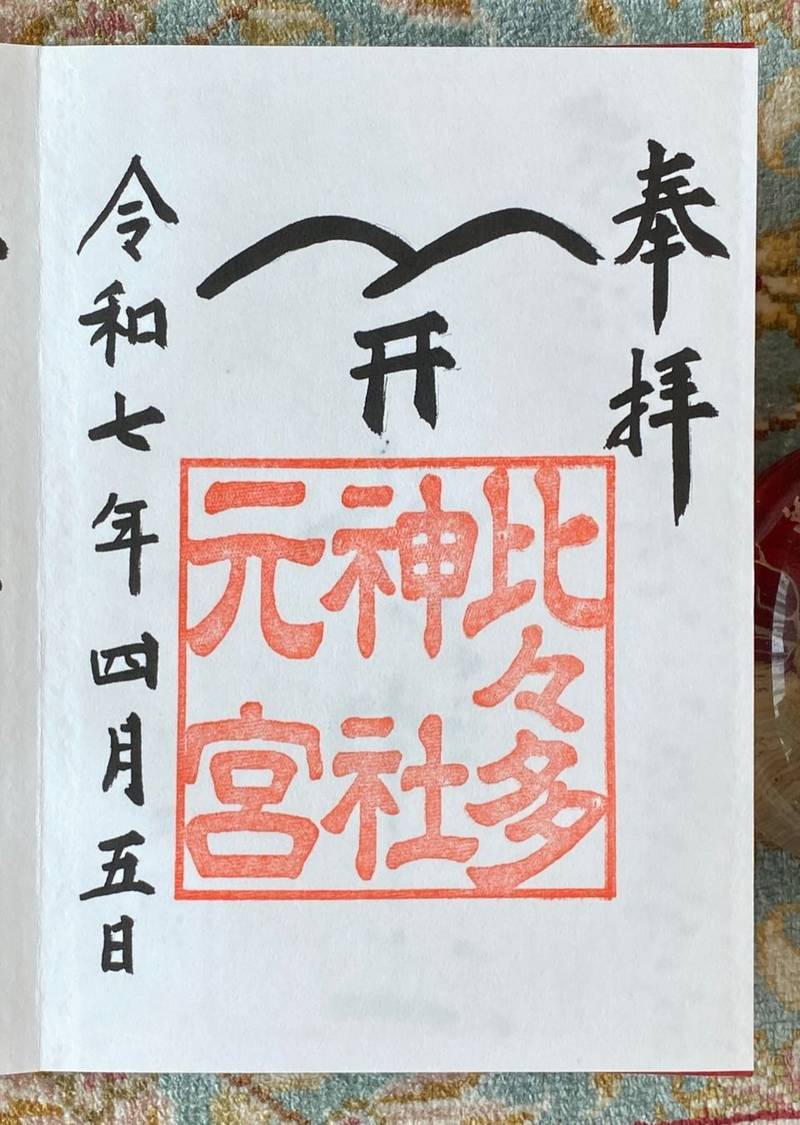 奉拝
比々多
神社
元宮
令和七年四月五日